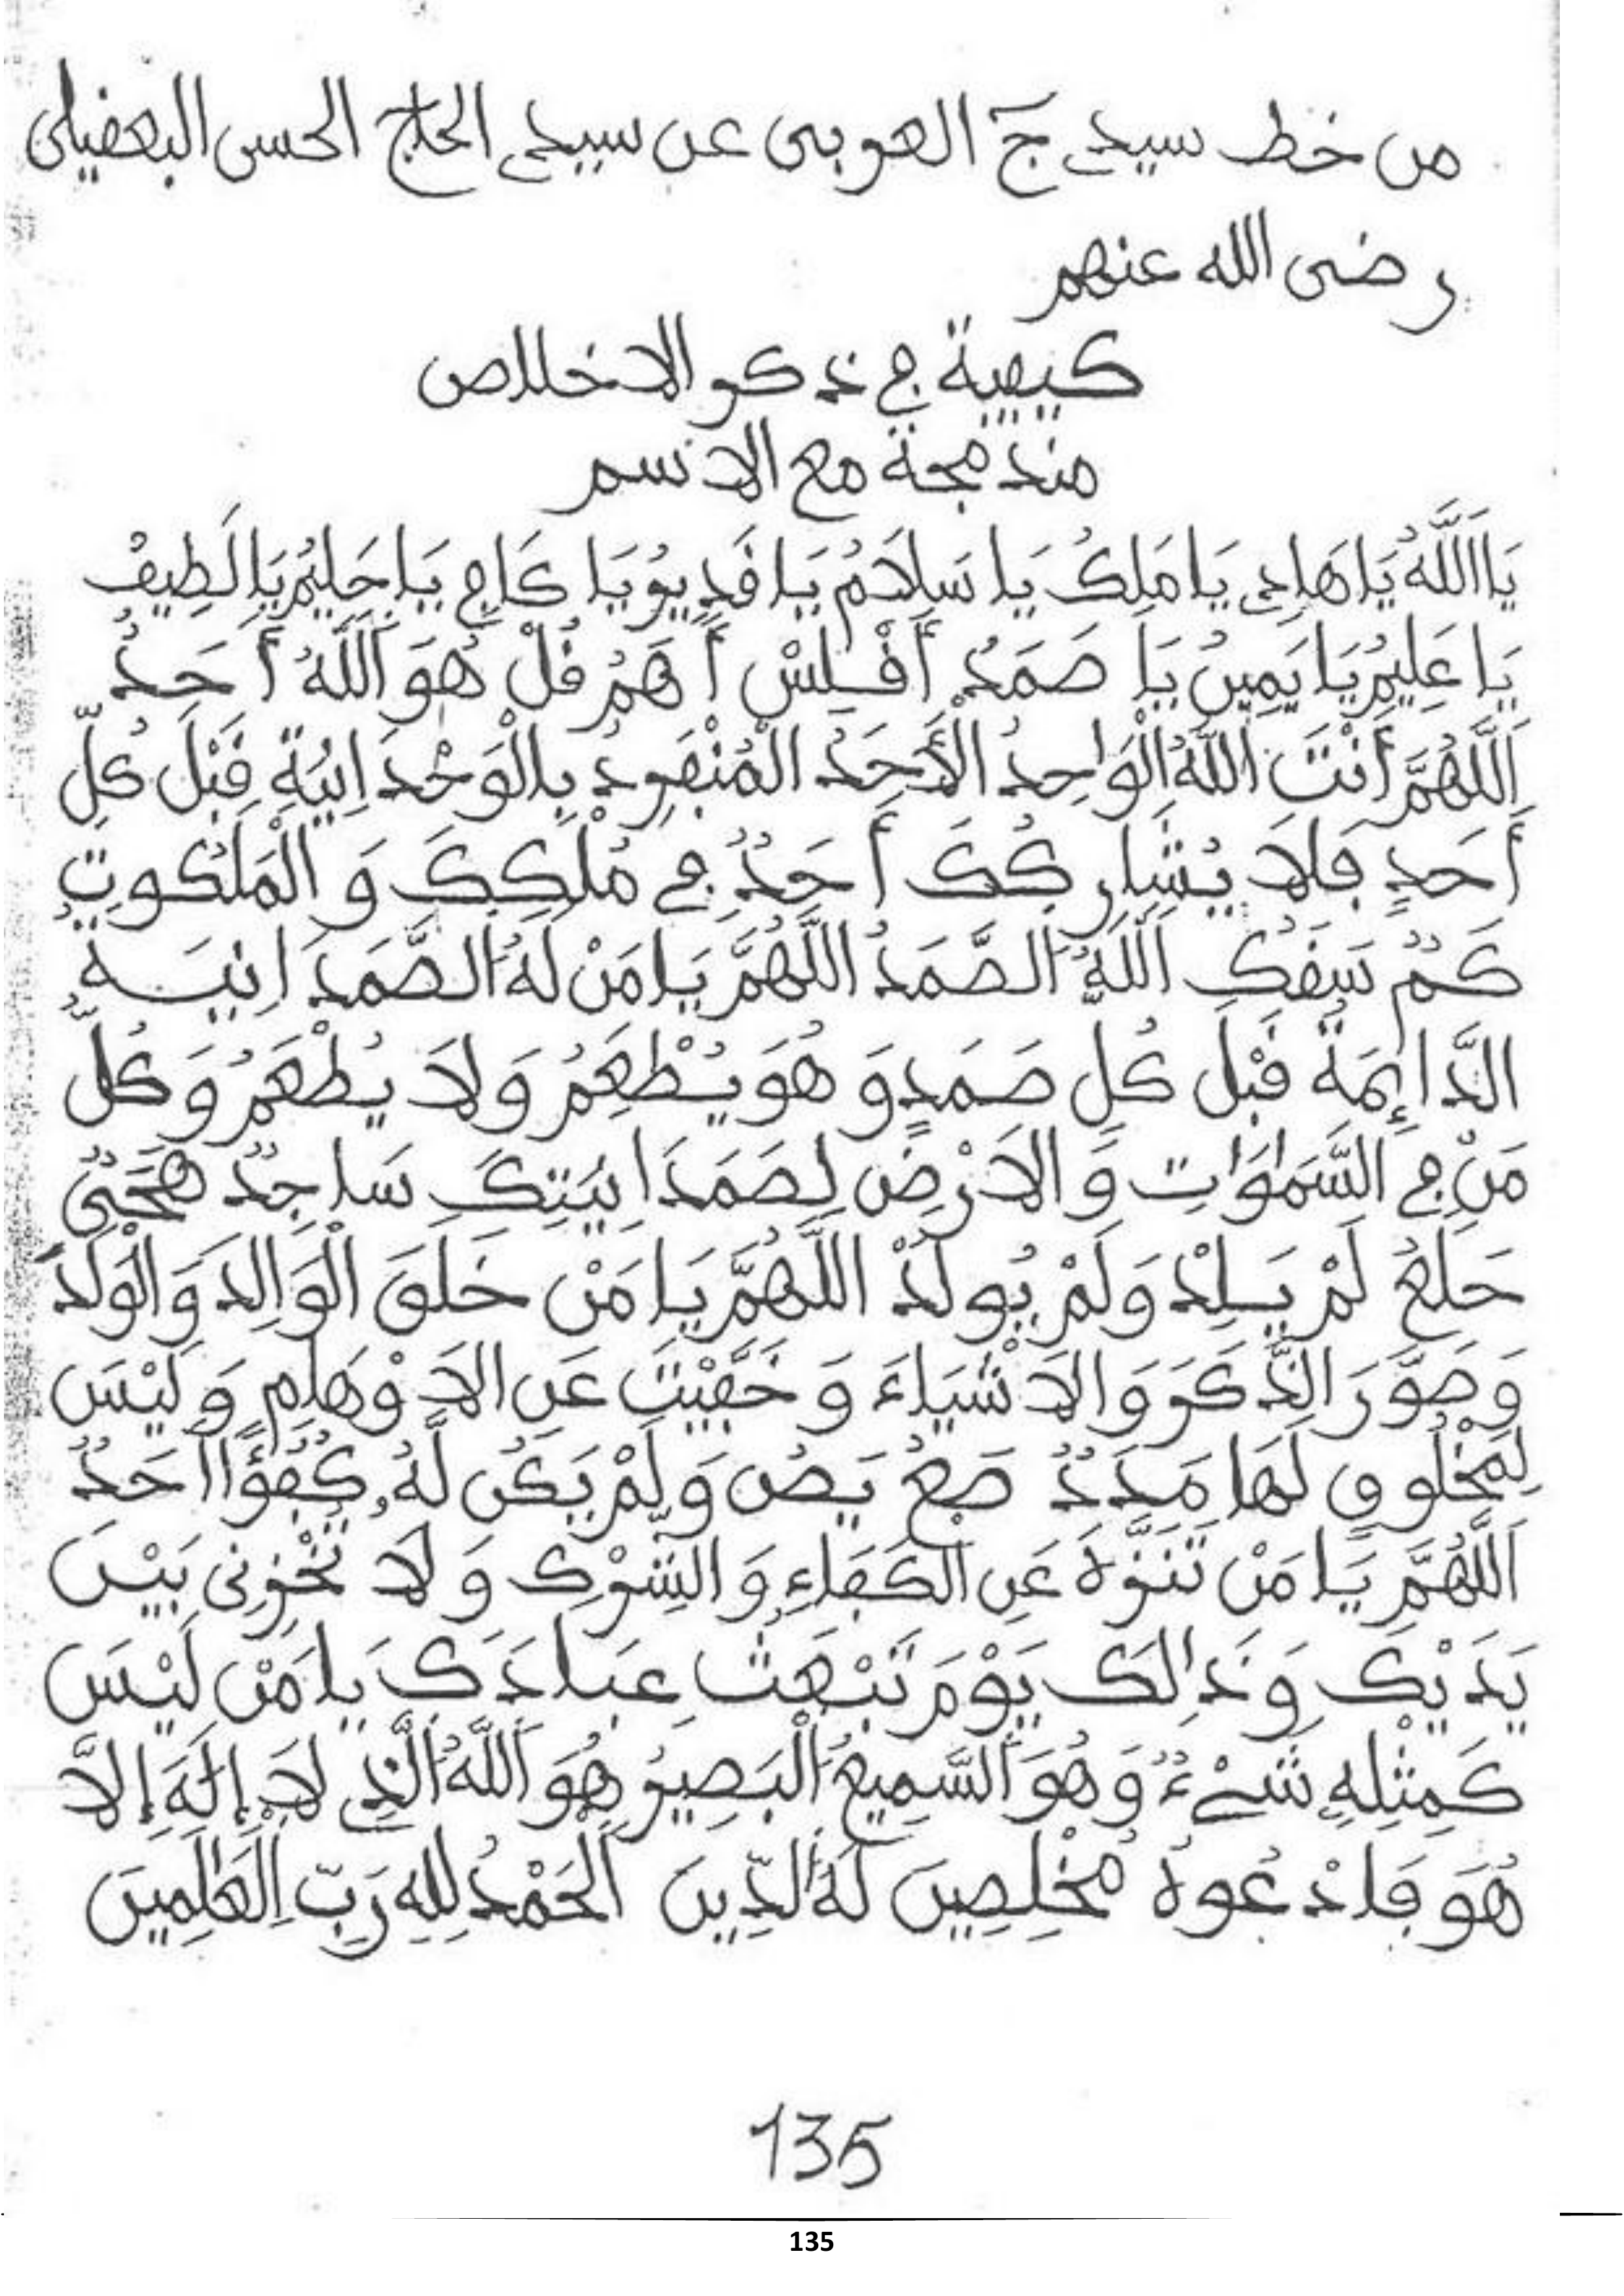 من خط سيدي ج العربى عن سيدي الحاج الحسن البعقيلى
رضى الله عنهم
كيفية في ذكر الاخلاص
مندمجة مع الاسم
يَا اَللَّهُ يَا هَادِي يَا مَلِكُ يَا سَلَامُ يَا قَدِيرُ يَا كَافِي يَا حَلِيمُ يَا لَطِيفُ
يَا عَلِيمُ يَا يَمِينُ يَا صَمَدُ أَقْسَلِسْ أَهَمٌ قُلْ هُوَ اَللَّهُ أَحَدٌ
اَللَّهُمَّ أَنْتَ اللَّهُ الْوَاحِدُ الْأَحَدُ الْمُنْفَرِدُ بِالْوَحْدَانِيَّةِ قَبْلَ كُلِّ
أَحَدٍ فَلَا يُشَارِكُكَ أَحَدٌ فِي مُلْكِكَ وَالْمَلَكُوتِ
كَمٌ سَقَكٍ اَللَّهُ الصَّمَدُ اللَّهُمَّ يَا مَنْ لَهُ الصَّمَدَانِيَةُ
الدَّائِمَةُ قَبْلَ كُلِّ صَمَدٍ وَهُوَ يُطْعِمُ وَلَا يُطْعَمُ وَكُلُّ
مَن فِي السَّمٰوَاتِ وَالَارْضِ لِصَمَدَانِيَتِكَ سَاجِدٌ
حَلَعٌ لَمْ يَلِدْ وَلَمْ يُولَدْ اللَّهُمَّ يَا مَنْ خَلَقَ الْوَالِدَ وَالْوَلَدَ
وَصَوَّرَ الذَّكَرَ وَالَاشْيَاءَ وَخَفِيْتَ عَنِ الَاوْهَامِ وَلَيْسَ
لِمَخْلُوقٍ لَهَا مَدَدٌ صَعٌ يَصٌ وَلَمْ يَكُن لَّهُ كُفُؤًا اَحَدٌ
اَللَّهُمَّ يَا مَنْ تَنَزَّهَ عَنِ الْكَفَاءِ وَالشِّرْكِ وَلَا تُخْزِنِى بَيْنَ
يَدَيْكَ وَذَالِكَ يَوْمَ تَبْعَثُ عِبَادَكَ يَا مَنْ لَيْسَ
كَمِثْلِهِ شَيْءٌ وَهُوَ اَلسَّمِيعُ اَلْبَصِيرُ هُوَ اَللَّهُ الَّذِي لَا إِلَهَ إِلَّا
هُوَ فَادْعُوهُ مُخْلِصِينَ لَهُ الدِّينَ اَلْحَمْدُ لِلهِ رَبِّ الْعَالَمِينَ
135
135